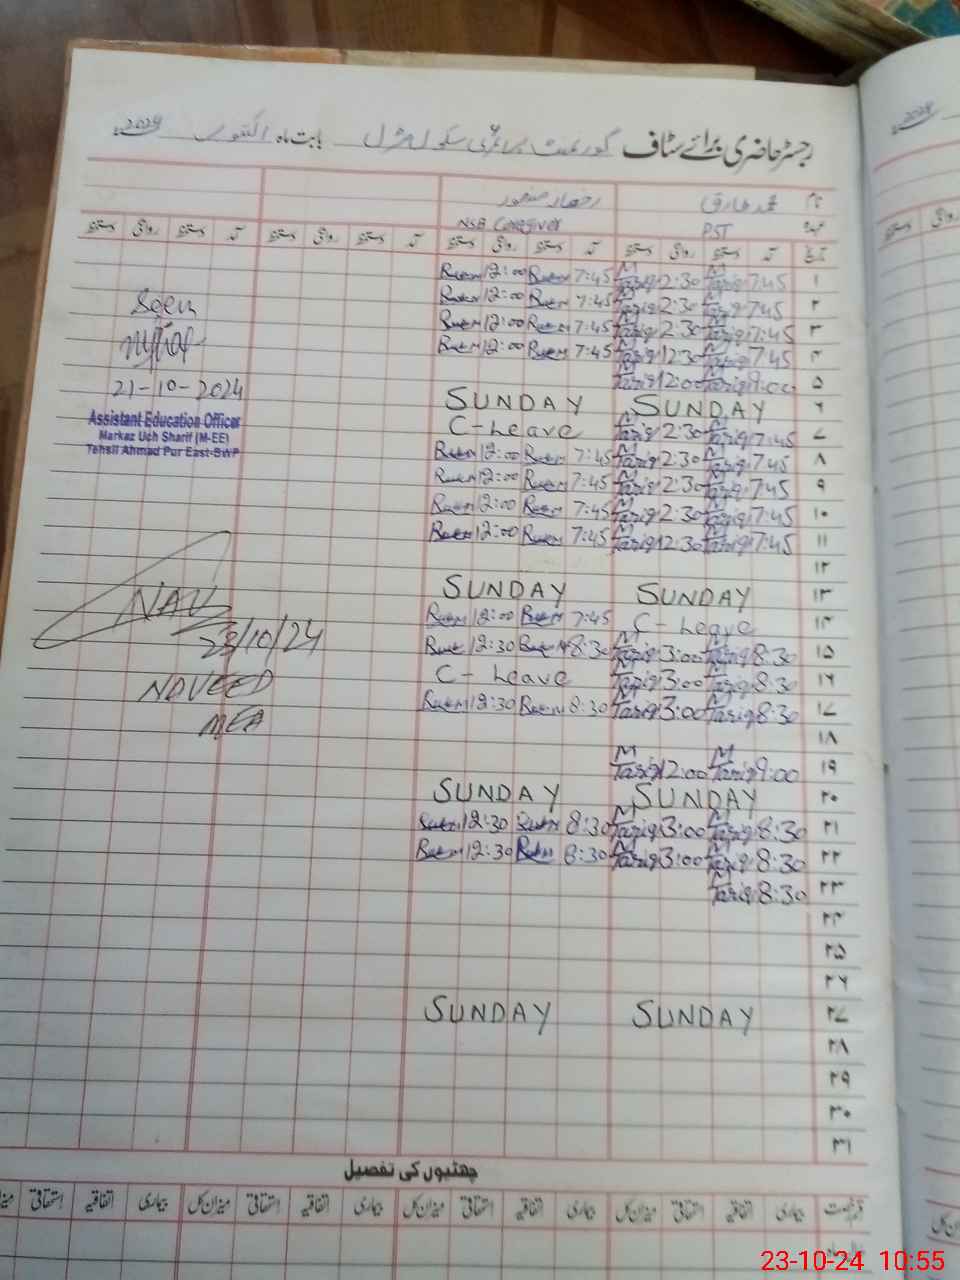 رجسٹر حاضری برائے سٹاف گورنمنٹ پرائمری سکول بابت ماہ اکتوبر 2024ء
نام محمد طارق
عہدہ PST NSB Caregiver
تاریخ آمد دستخط روانگی دستخط آمد دستخط روانگی دستخط آمد دستخط روانگی دستخط آمد دستخط روانگی دستخط
۱ 7:45 M Tariq 12:30 M Tariq 7:45 12:00
۲ 7:45 M Tariq 12:30 M Tariq 7:45 12:00
۳ 7:45 M Tariq 12:30 M Tariq 7:45 12:00
۴ 7:45 M Tariq 12:30 M Tariq 7:45 12:00
۵ 9:00 M Tariq 12:00 M Tariq
۶ SUNDAY SUNDAY
۷ 7:45 M Tariq 12:30 M Tariq C-Leave
۸ 7:45 M Tariq 12:30 M Tariq 7:45 12:00
۹ 7:45 M Tariq 12:30 M Tariq 7:45 12:00
۱۰ 7:45 M Tariq 12:30 M Tariq 7:45 12:00
۱۱ 7:45 M Tariq 12:30 M Tariq 7:45 12:00
۱۲
۱۳ SUNDAY SUNDAY
۱۴ C-Leave 7:45 12:00
۱۵ 8:30 M Tariq 3:00 M Tariq 8:30 12:30
۱۶ 8:30 M Tariq 3:00 M Tariq C-Leave
۱۷ 8:30 M Tariq 3:00 M Tariq 8:30 12:30
۱۸
۱۹ 9:00 M Tariq 12:00 M Tariq
۲۰ SUNDAY SUNDAY
۲۱ 8:30 M Tariq 3:00 M Tariq 8:30 12:30
۲۲ 8:30 M Tariq 3:00 M Tariq 8:30 12:30
۲۳ 8:30 M Tariq
۲۴
۲۵
۲۶
۲۷ SUNDAY SUNDAY
۲۸
۲۹
۳۰
۳۱
Seen
21-10-2024
Assistant Education Officer
Markaz Uch Sharif (M-EE)
Tehsil Ahmad Pur East-BWP
NAV
23/10/24
NAVEED
MEA
چھٹیوں کی تفصیل
قسم رخصت بیماری اتفاقیہ استحقاقی میزان کل بیماری اتفاقیہ استحقاقی میزان کل بیماری اتفاقیہ استحقاقی میزان کل بیماری اتفاقیہ استحقاقی
23-10-24 10:55